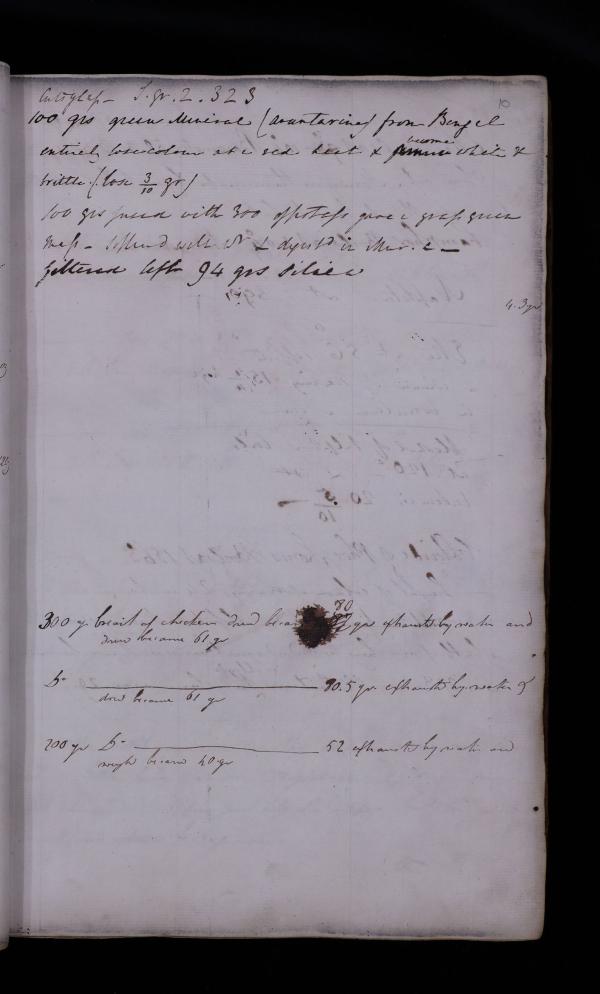 10
S. gr. 2.323
100 grs green Mineral (avanturine) from Bengal
entirely lose colour at a red heat & become white &
brittle. (lose 3/10 gr)
100 grs fused with 300 of potass gave a grass green
mass - & digestd in Mur. a -
filtered left 94 grs Silica
4.3 gr
300 gr breast of chicken dried became 80 grs exhausted by water and
dried became 61 gr
Do 90.5 gr exhausted by water &
dried became 61 gr
200 gr Do 52 exhausted by water and
weigh became 40 gr